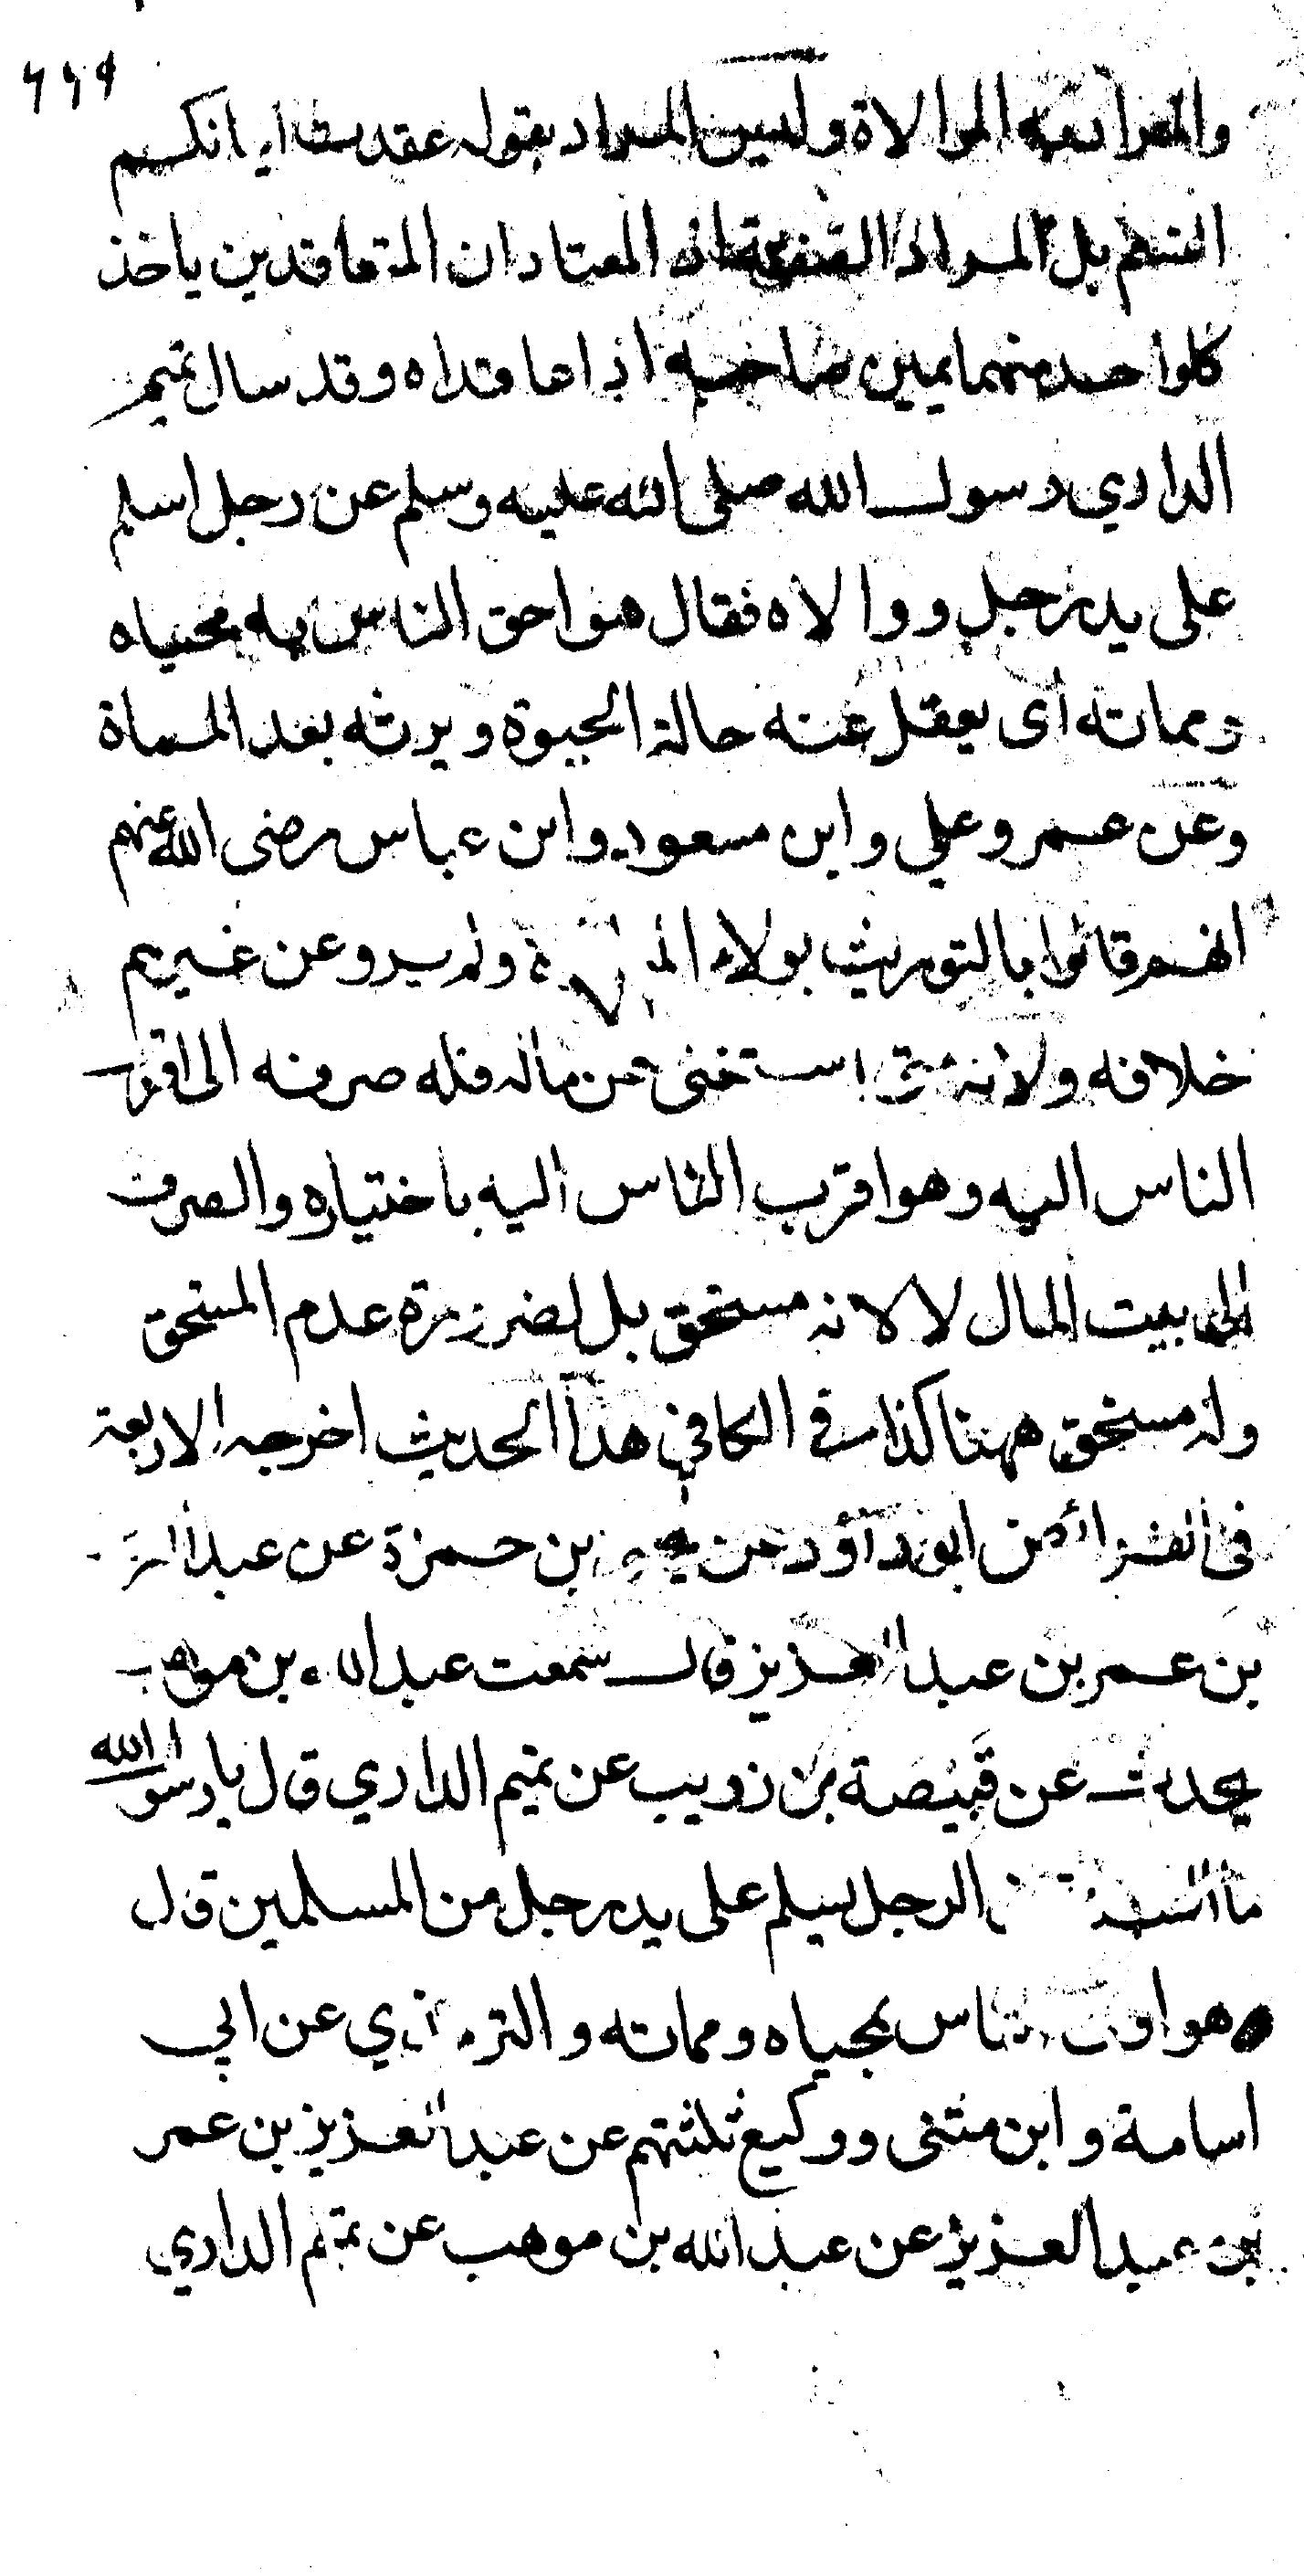 ٦٦٩
والمراد به الموالاة وليس المراد بقوله عقدت ايمانكم
القسم بل المراد الصفقة اذ المعتاد ان المتعاقدين ياخذ
كلواحد منهما يمين صاحبه اذا عاقداه وقد سال تميم
الداري رسول الله صلى الله عليه وسلم عن رجل اسلم
على يد رجل ووالاه فقال هو احق الناس به محياه
ومماته اى يعقل عنه حالة الحيوة ويرثه بعد المماة
وعن عمر وعلي وابن مسعود وابن عباس رضى الله عنهم
انهم قالوا بالتوريث بولاء ولم يرو عن غيرهم
خلافه ولانه متى استغنى عن ماله فله صرفه الى اقرب
الناس اليه وهو اقرب الناس اليه باختياره والصرف
الى بيت المال لا لانه مستحق بل لضرورة عدم المستحق
وله مستحق ههنا كذا في الكافي هذا الحديث اخرجه الاربعة
فى الفرائض ابو داؤد عن بن حمزة عن عبد العزيز
بن عمر بن عبد العزيز قال سمعت عبد الله بن موهب
يحدث عن قَبيْصَة بن ذويب عن تميم الداري قال يا رسول الله
ما السنة الرجل يسلم على يد رجل من المسلمين قال
هو اولى الناس بمحياه ومماته والترمذي عن ابي
اسامة وابن مثنى ووكيع ثلثتهم عن عبد العزيز بن عمر
بن عبد العزيز عن عبد الله بن موهب عن تميم الداري